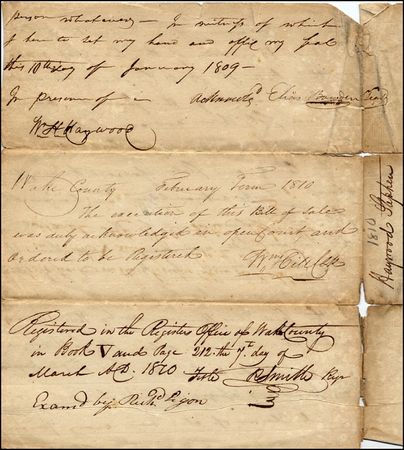 person whatsoever — In witness of which
I have to set my hand and affix my seal
this 10th day of January 1809 —
In presence of — Acknowled
W H Haywood
Wake County February Term 1810
The execution of this Bill of sale
was duly acknowledged in open Court and
Ordered to be Registered
Wm Hill Clk
Registered in the Registers Office of Wake County
in Book V and Page 212. the 7th day of
March A.D. 1810 Teste R Smith Regr
Examd by Richd Pigon
1810
Haywood Stephen